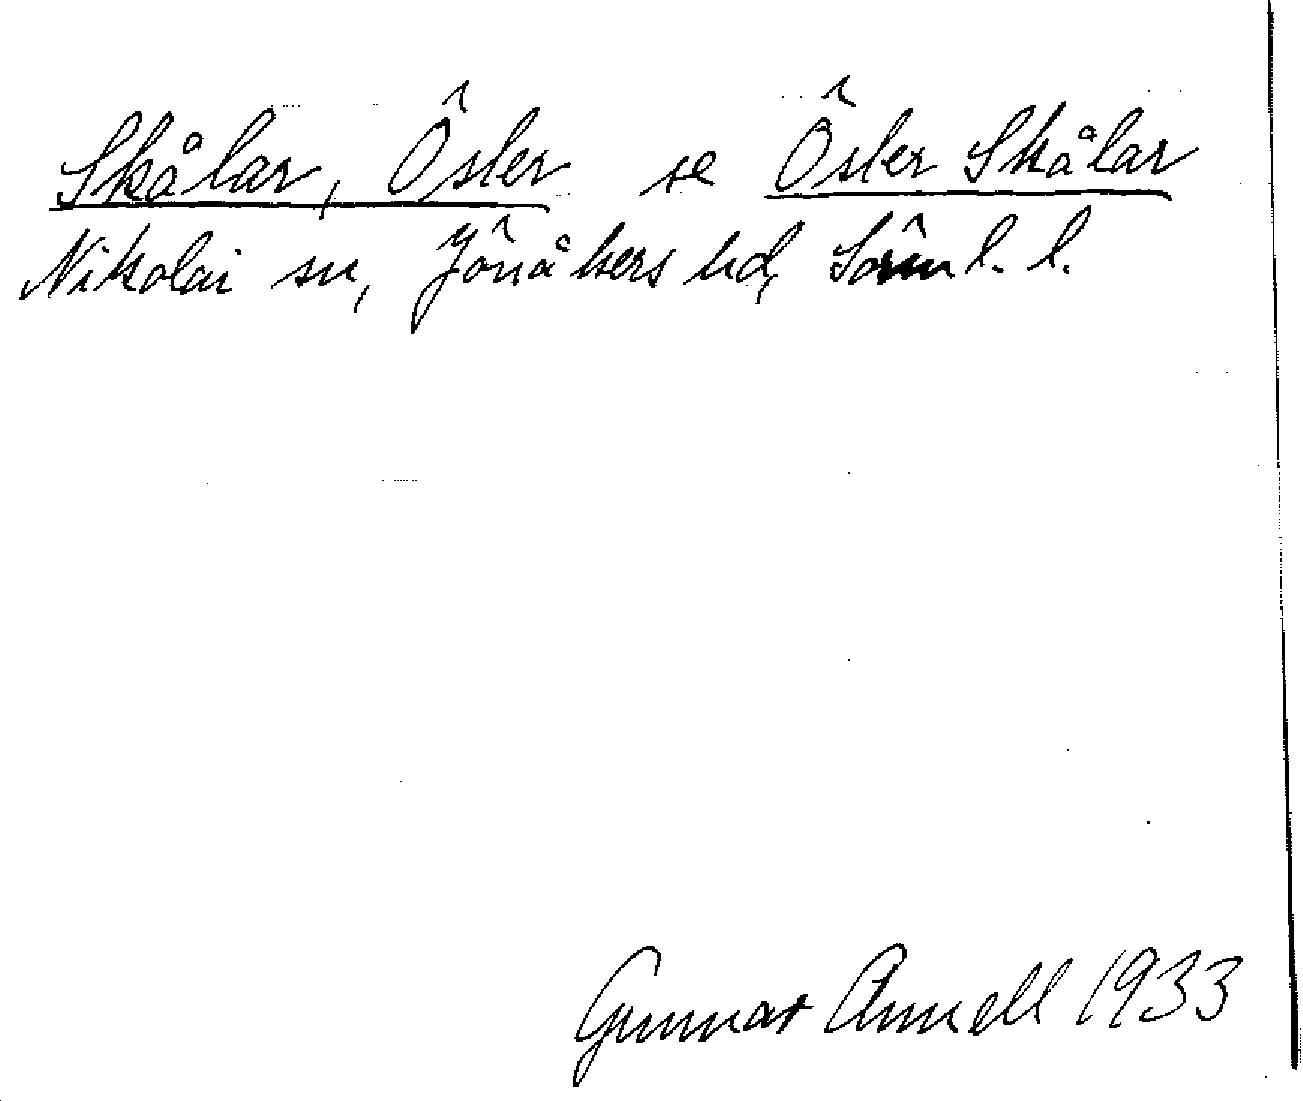 Skålar, Öster se Öster Skålar
Nikolai sn, Jönåkers hd, Sörml. l.
Gunnar Annell 1933